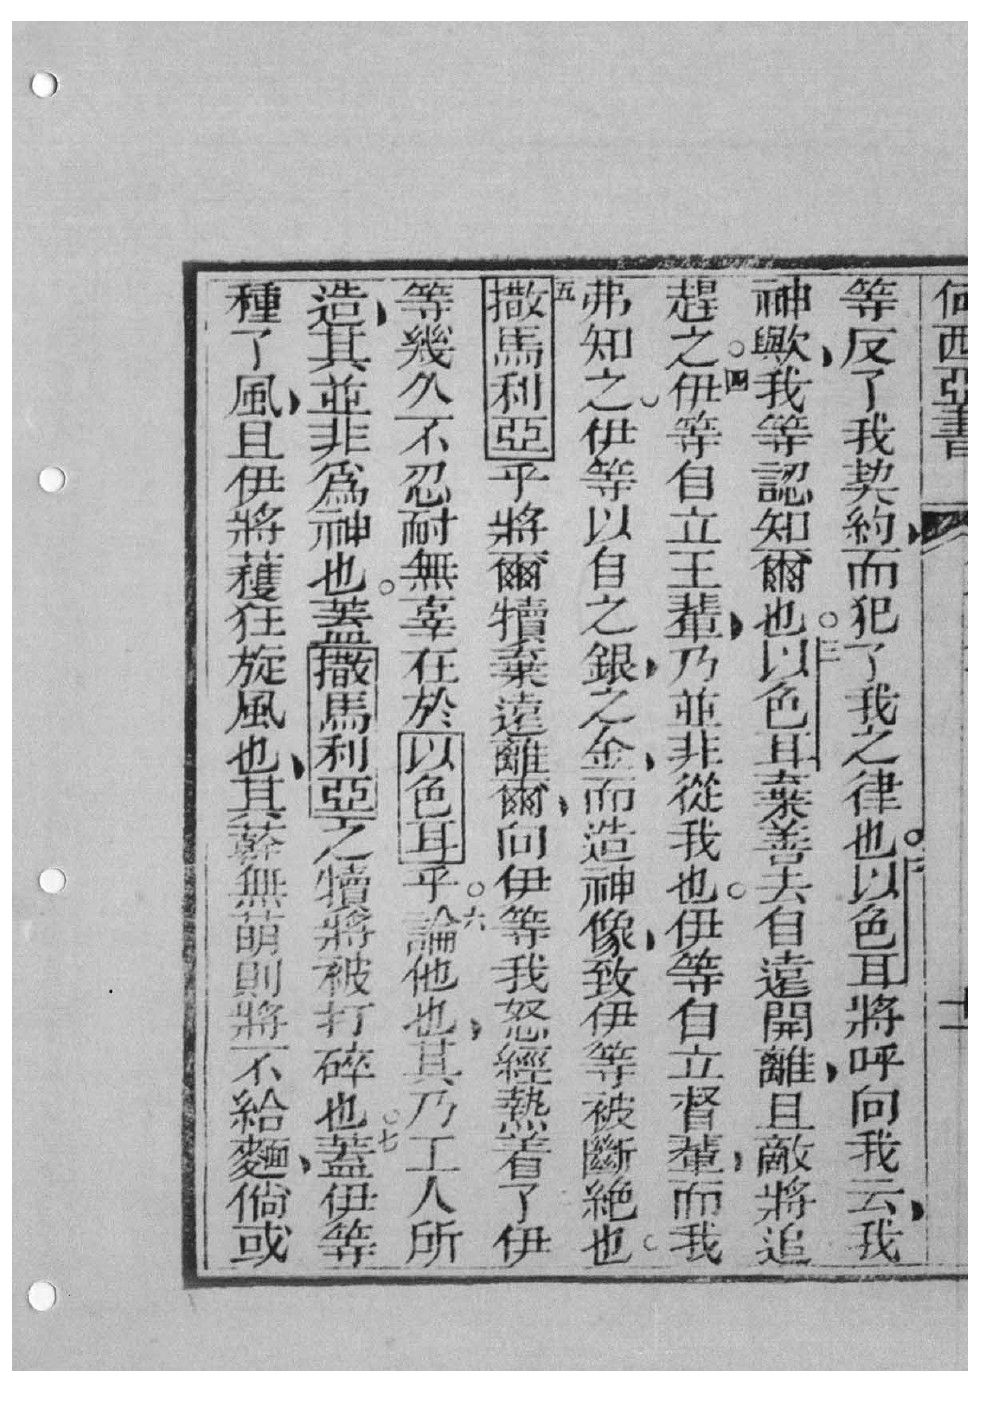 何西亞書
等反了我契約而犯了我之律也。二以色耳將呼向我云我
神歟我等認知爾也。三以色耳棄善去自遠開離且敵將追
趕之。四伊等自立王輩乃並非從我也。伊等自立督輩而我
弗知之。伊等以自之銀之金而造神像致伊等被斷絕也。
五撒馬利亞乎將爾犢棄遠離爾向伊等我怒經熱着了伊
等幾久不忍耐無辜在於以色耳乎。六論他也其乃工人所
造其並非為神也。蓋撒馬利亞之犢將被打碎也。七蓋伊等
種了風且伊將穫狂旋風也其藳無萌則將不給麵倘或